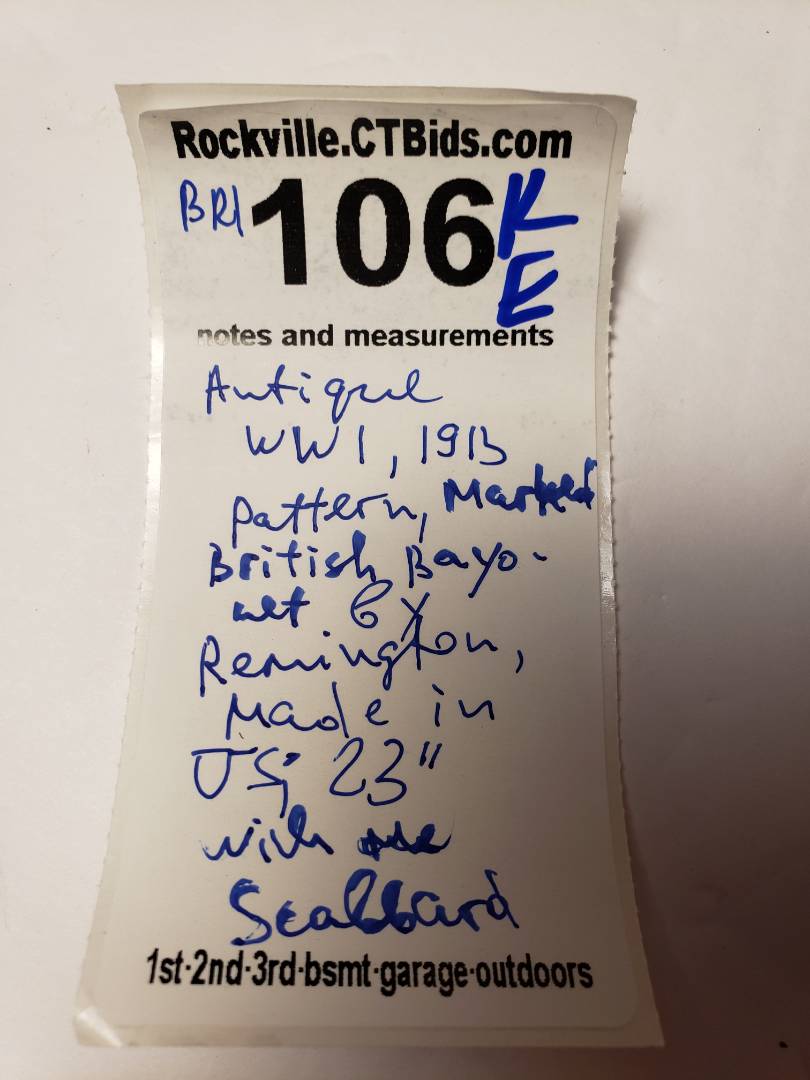 Rockville.CTBids.com
BRI 106 KE
notes and measurements
Antique
WW1, 1913
pattern, Marked
British Bayo-
net by
Remington,
Made in
US, 23"
with
Scabbard
1st·2nd·3rd·bsmt·garage·outdoors